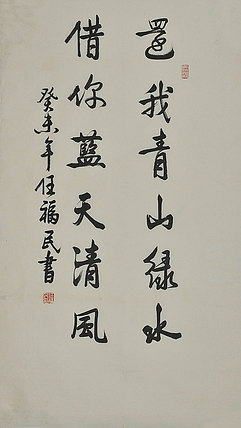 還我青山綠水
借你藍天清風
癸未年任福民書